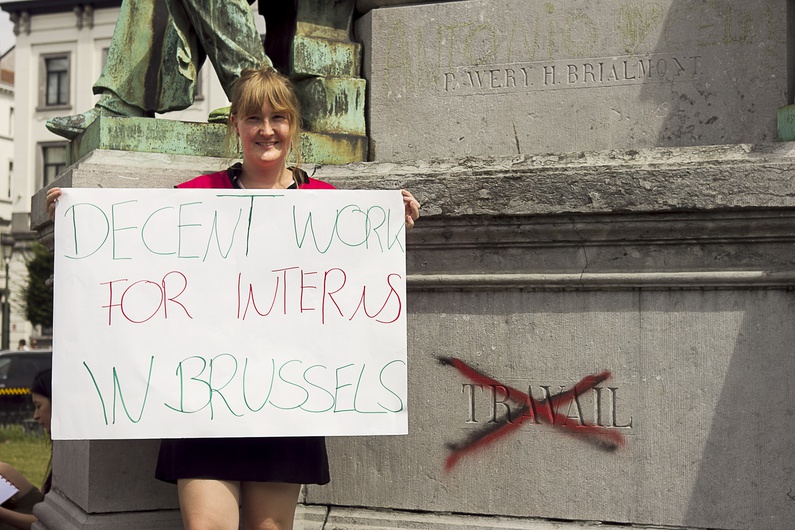 DECENT WORK
FOR INTERNS
IN BRUSSELS
ANTONIO
P. WERY H. BRIALMONT
TRAVAIL